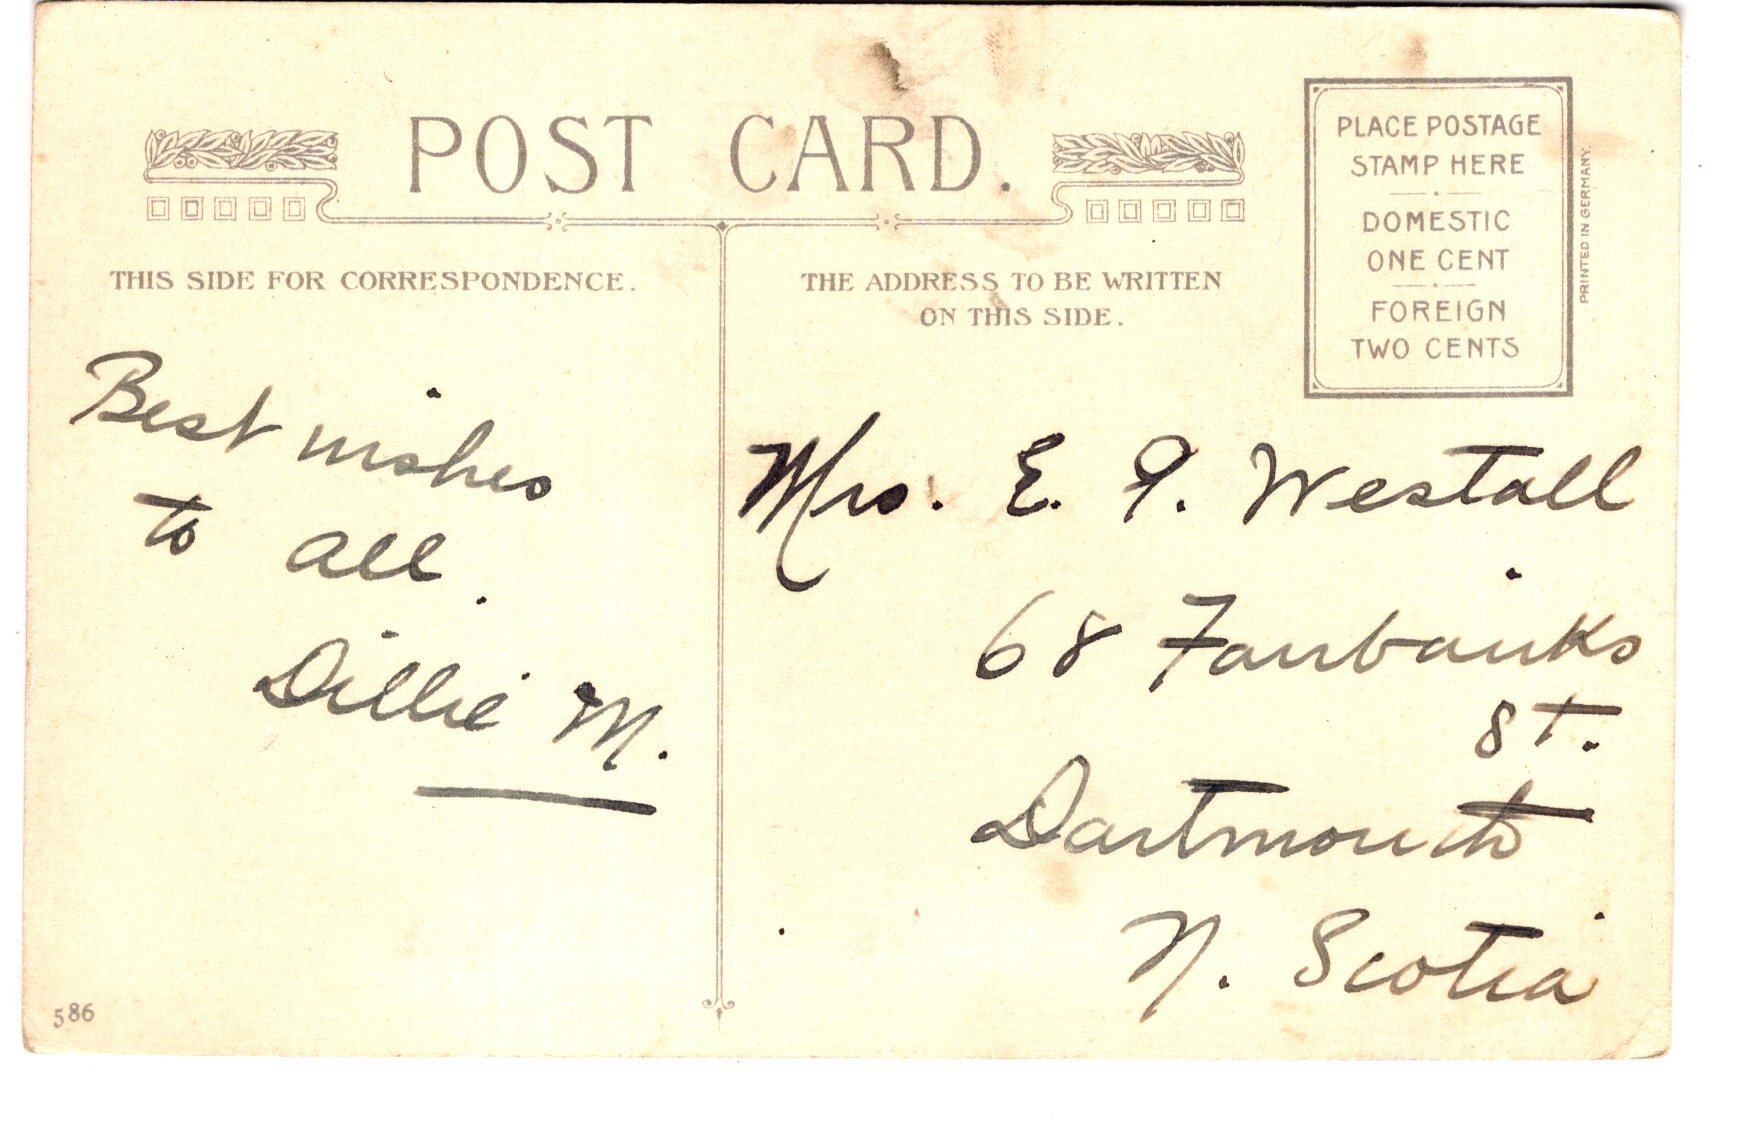 POST CARD.
PLACE POSTAGE
STAMP HERE
DOMESTIC
ONE CENT
FOREIGN
TWO CENTS
PRINTED IN GERMANY.
THIS SIDE FOR CORRESPONDENCE.
THE ADDRESS TO BE WRITTEN
ON THIS SIDE.
Best wishes
to all.
Dillie M.
Mrs. E. P. Westall
68 Fairbanks
St.
Dartmouth
N. Scotia
586